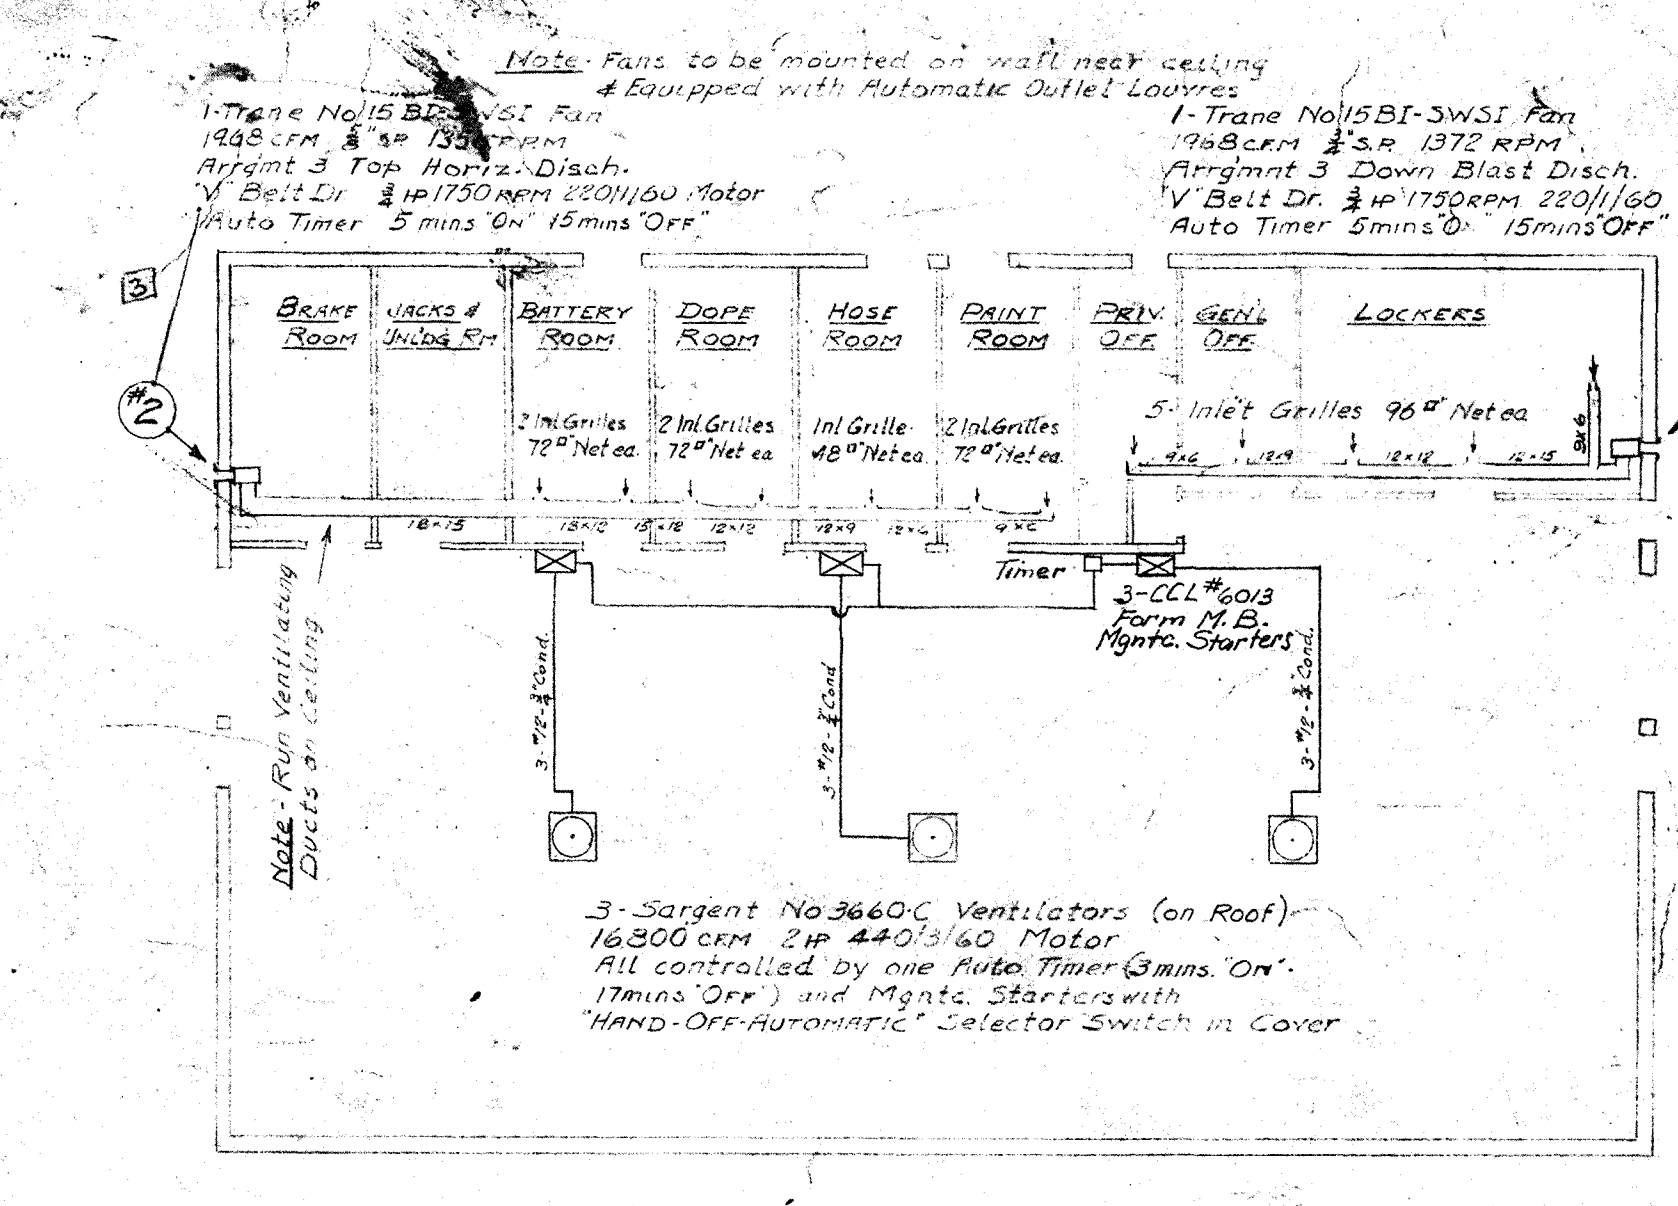 Note- Fans to be mounted on wall near ceiling
& Equipped with Automatic Outlet Louvres
1-Trane No 15 BI-SWSI Fan
1968 CFM "SP RPM
Arrgmt 3 Top Horiz. Disch.
"V" Belt Dr 3/4 HP 1750 RPM 220/1/60 Motor
Auto Timer 5 mins "ON" 15 mins "OFF"
1-Trane No 15 BI-SWSI Fan
1968 C.F.M 3/4" S.P. 1372 RPM
Arrgmnt 3 Down Blast Disch.
"V" Belt Dr. 3/4 HP 1750 RPM 220/1/60
Auto Timer 5 mins 15 mins "OFF"
3
#2
BRAKE
ROOM
JACKS &
UNL'DG RM
BATTERY
ROOM
DOPE
ROOM
HOSE
ROOM
PAINT
ROOM
PRIV.
OFF.
GEN'L
OFF.
LOCKERS
2 Inl. Grilles
72 □" Net ea.
2 Inl. Grilles
72 □" Net ea
Inl Grille
48 □" Net ea.
2 Inl. Grilles
72 □" Net ea.
5- Inlet Grilles 96 □" Net ea
9x6
9x6
12x9
12x12
12x15
18x15
18x12
15x12
12x12
12x9
12x6
9x6
Timer
3-CCL #6013
Form M.B.
Mgntc. Starters
Note- Run Ventilating
Ducts on Ceiling
3-#12-3/4" Cond.
3-#12-3/4" Cond
3-#12-3/4" Cond.
3-Sargent No 3660-C Ventilators (on Roof)
16800 CFM 2 HP 440/3/60 Motor
All controlled by one Auto Timer (3 mins. "ON"-
17 mins "OFF") and Mgntc. Starters with
"HAND-OFF-AUTOMATIC" Selector Switch in Cover